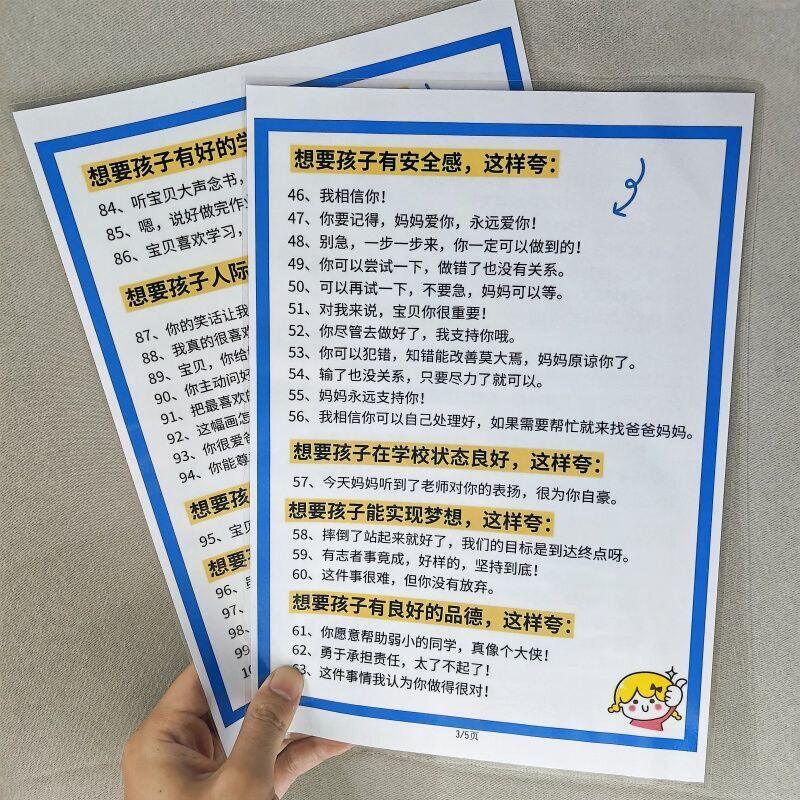 想要孩子有好的学
84、听宝贝大声念书，
85、嗯，说好做完作业
86、宝贝喜欢学习，
想要孩子人际
87、你的笑话让我
88、我真的很喜欢
89、宝贝，你给
90、你主动问好
91、把最喜欢的
92、这幅画怎
93、你很爱爸
94、你能尊
想要孩
95、宝贝
想要孩
96、
97、
98、
99
10
想要孩子有安全感，这样夸：
46、我相信你！
47、你要记得，妈妈爱你，永远爱你！
48、别急，一步一步来，你一定可以做到的！
49、你可以尝试一下，做错了也没有关系。
50、可以再试一下，不要急，妈妈可以等。
51、对我来说，宝贝你很重要！
52、你尽管去做好了，我支持你哦。
53、你可以犯错，知错能改善莫大焉，妈妈原谅你了。
54、输了也没关系，只要尽力了就可以。
55、妈妈永远支持你！
56、我相信你可以自己处理好，如果需要帮忙就来找爸爸妈妈。
想要孩子在学校状态良好，这样夸：
57、今天妈妈听到了老师对你的表扬，很为你自豪。
想要孩子能实现梦想，这样夸：
58、摔倒了站起来就好了，我们的目标是到达终点呀。
59、有志者事竟成，好样的，坚持到底！
60、这件事很难，但你没有放弃。
想要孩子有良好的品德，这样夸：
61、你愿意帮助弱小的同学，真像个大侠！
62、勇于承担责任，太了不起了！
63、这件事情我认为你做得很对！
3/5页